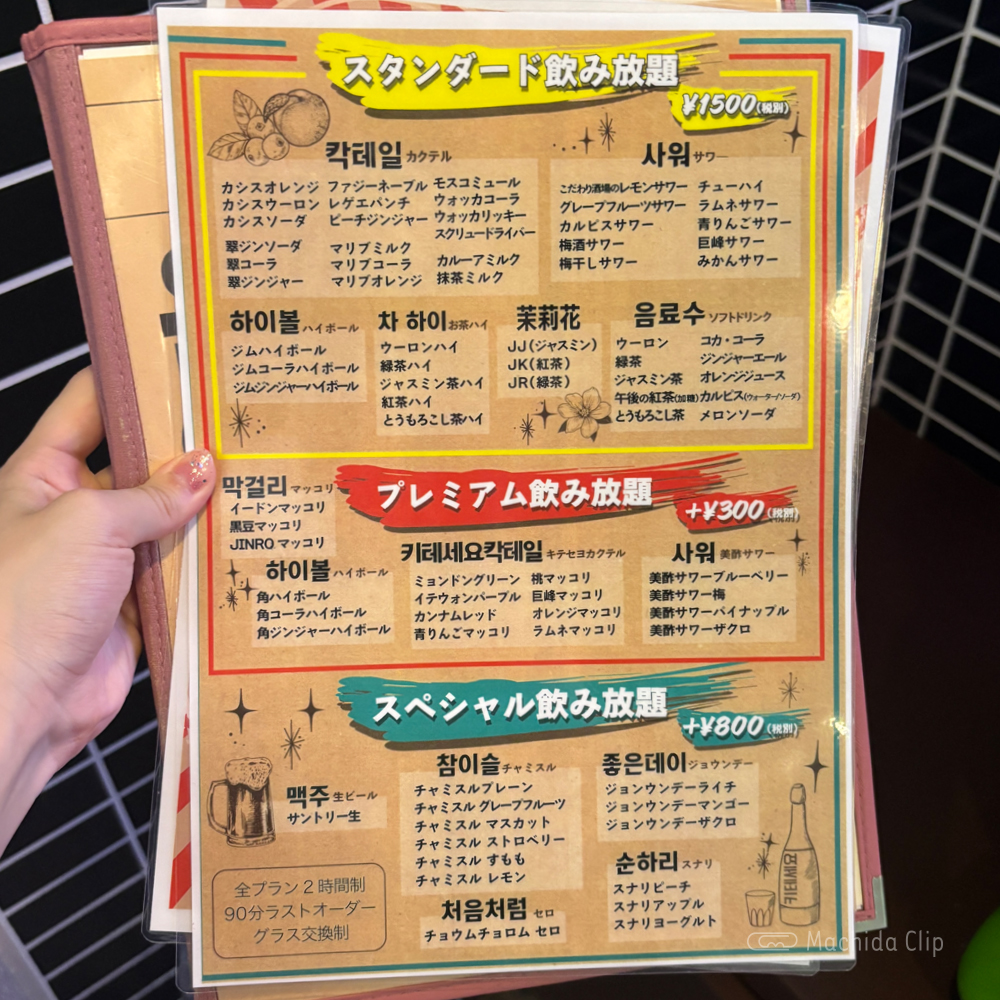 スタンダード飲み放題
¥1500(税別)
칵테일 カクテル
カシスオレンジ
カシスウーロン
カシスソーダ
翠ジンソーダ
翠コーラ
翠ジンジャー
ファジーネーブル
レゲエパンチ
ピーチジンジャー
マリブミルク
マリブコーラ
マリブオレンジ
モスコミュール
ウォッカコーラ
ウォッカリッキー
スクリュードライバー
カルーアミルク
抹茶ミルク
사워 サワー
こだわり酒場のレモンサワー
グレープフルーツサワー
カルピスサワー
梅酒サワー
梅干しサワー
チューハイ
ラムネサワー
青りんごサワー
巨峰サワー
みかんサワー
하이볼 ハイボール
ジムハイボール
ジムコーラハイボール
ジムジンジャーハイボール
차 하이 お茶ハイ
ウーロンハイ
緑茶ハイ
ジャスミン茶ハイ
紅茶ハイ
とうもろこし茶ハイ
茉莉花
JJ(ジャスミン)
JK(紅茶)
JR(緑茶)
음료수 ソフトドリンク
ウーロン
緑茶
ジャスミン茶
午後の紅茶(加糖)
とうもろこし茶
コカ・コーラ
ジンジャーエール
オレンジジュース
カルピス(ウォーター/ソーダ)
メロンソーダ
プレミアム飲み放題
+¥300(税別)
막걸리 マッコリ
イードンマッコリ
黒豆マッコリ
JINRO マッコリ
하이볼 ハイボール
角ハイボール
角コーラハイボール
角ジンジャーハイボール
키테세요칵테일 キテセヨカクテル
ミョンドングリーン
イテウォンパープル
カンナムレッド
青りんごマッコリ
桃マッコリ
巨峰マッコリ
オレンジマッコリ
ラムネマッコリ
사워 美酢サワー
美酢サワーブルーベリー
美酢サワー梅
美酢サワーパイナップル
美酢サワーザクロ
スペシャル飲み放題
+¥800(税別)
맥주 生ビール
サントリー生
참이슬 チャミスル
チャミスルプレーン
チャミスル グレープフルーツ
チャミスル マスカット
チャミスル ストロベリー
チャミスル すもも
チャミスル レモン
처음처럼 セロ
チョウムチョロム セロ
좋은데이 ジョウンデー
ジョウンデーライチ
ジョウンデーマンゴー
ジョウンデーザクロ
순하리 スナリ
スナリピーチ
スナリアップル
スナリヨーグルト
키테세요
全プラン２時間制
90分ラストオーダー
グラス交換制
Machida Clip